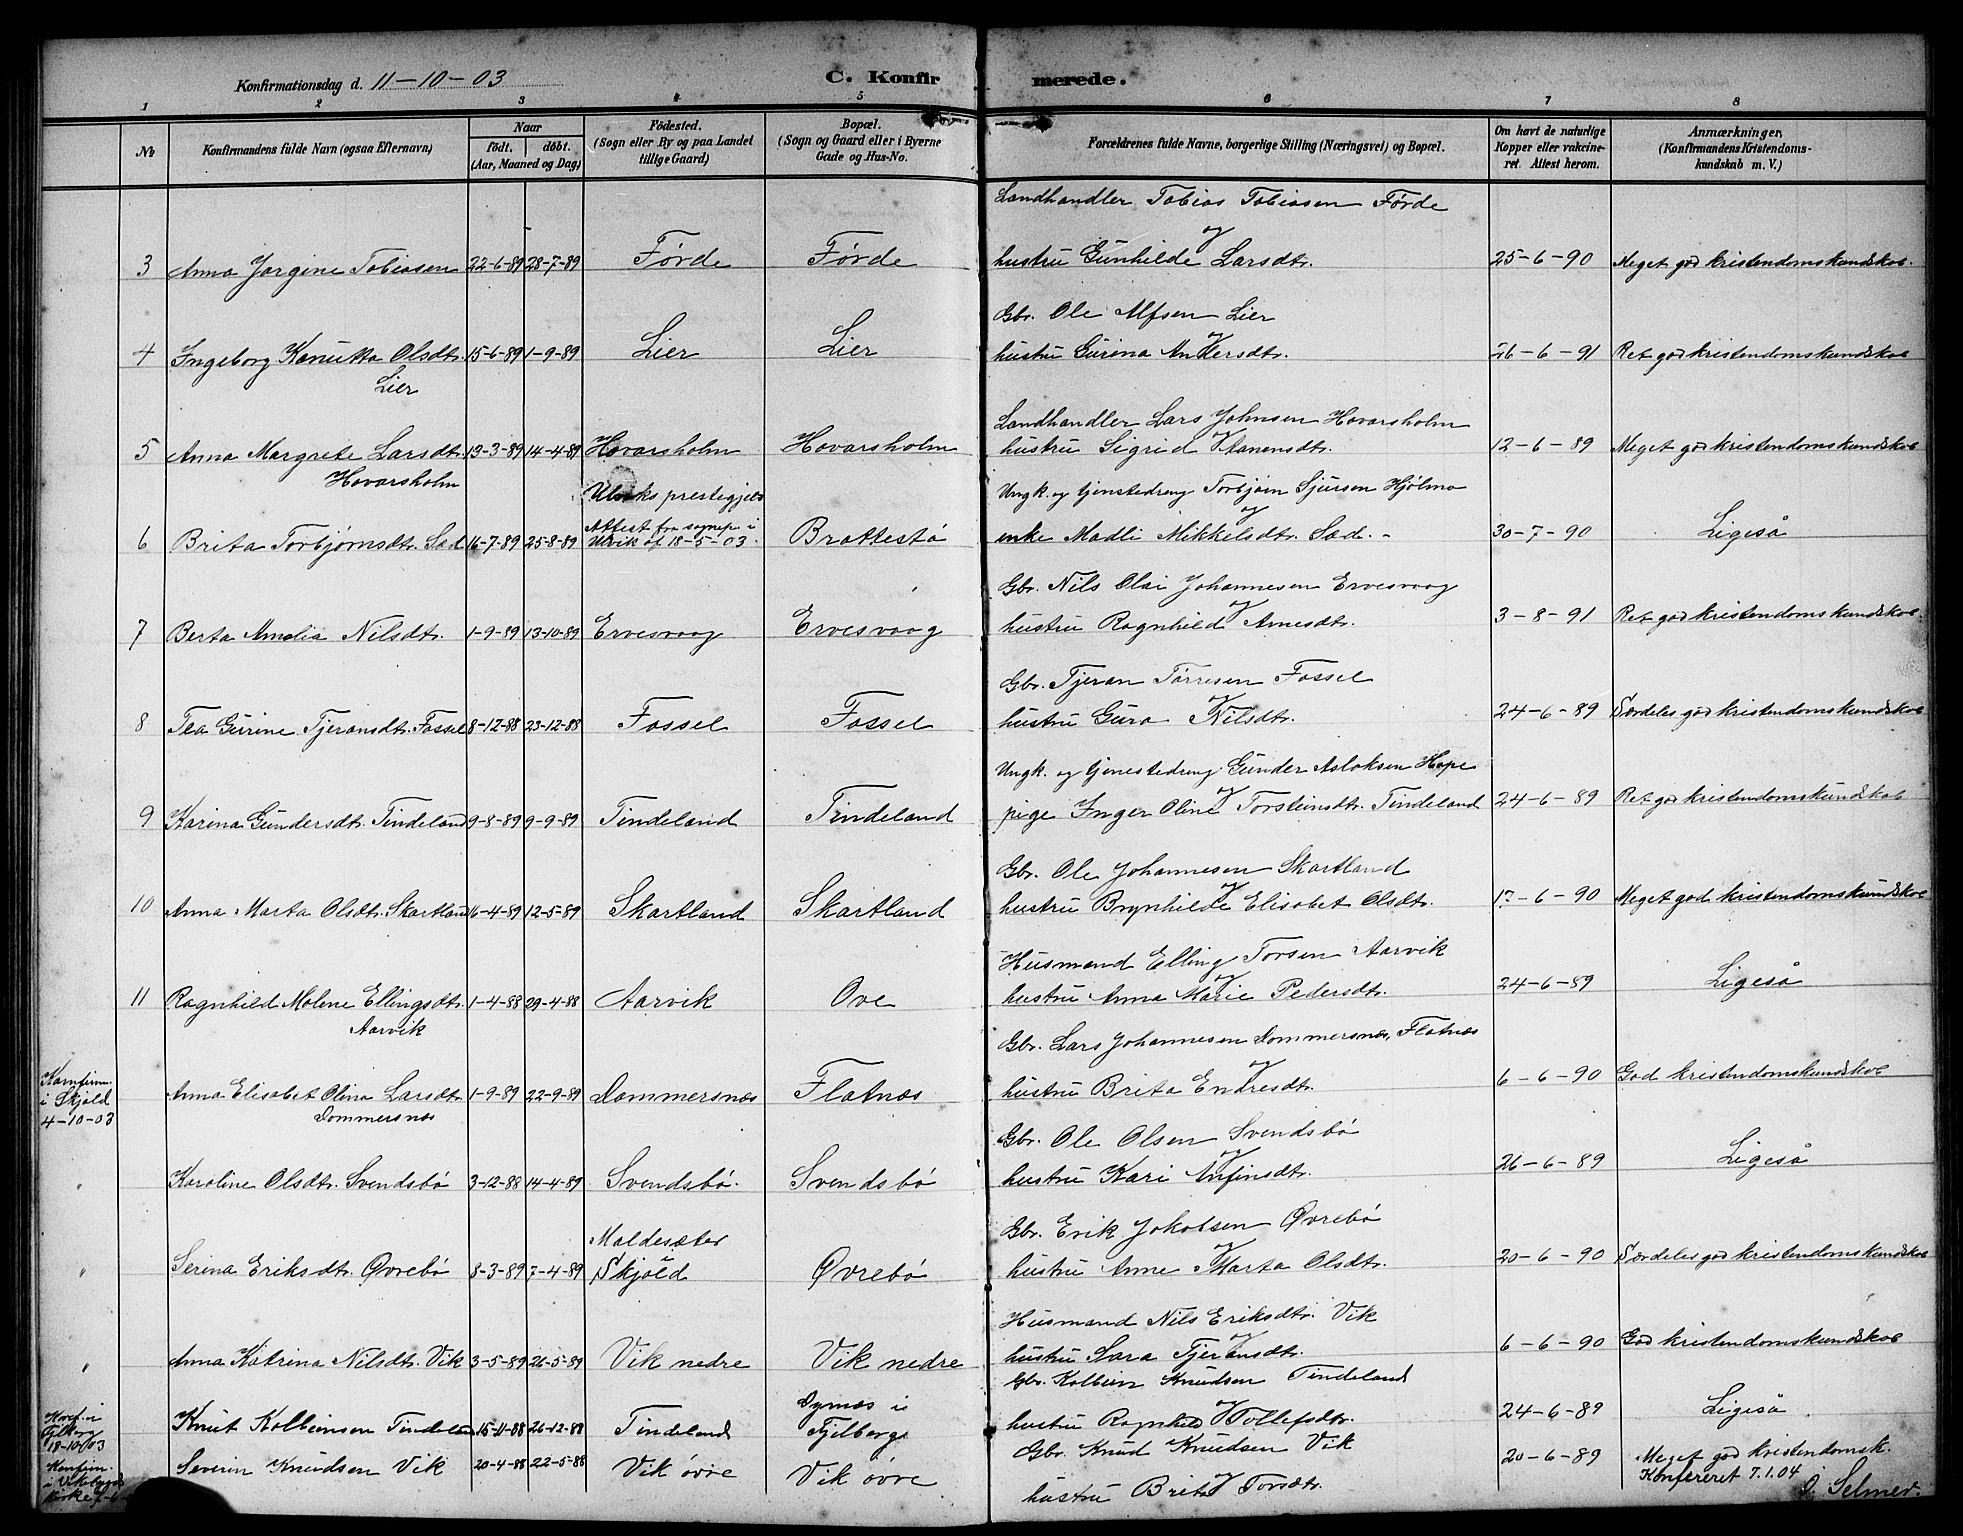 Konfirmationsdag d. 11-10-03
C. Konfirmerede.
1 2 3 4 5 6 7 8
№
Konfirmandens fulde Navn (ogsaa Efternavn)
Naar
födt. döbt.
(Aar, Maaned og Dag)
Födested.
(Sogn eller By og paa Landet
tillige Gaard)
Bopæl.
(Sogn og Gaard eller i Byerne
Gade og Hus-No.
Forældrenes fulde Navne, borgerlige Stilling (Næringsvei) og Bopæl.
Om havt de naturlige
Kopper eller vakcine-
ret. Attest herom.
Anmærkninger,
(Konfirmandens Kristendoms-
kundskab m. V.)
Landhandler Tobias Tobiasen Førde
og
3 Anna Jorgine Tobiasen 22-6-89 28-7-89 Førde Førde hustru Gunhilde Larsdtr. 25-6-90 Meget god kristendomskundskab.
Gbr. Ole Alfsen Lier
og
4 Ingeborg Kanutta Olsdtr. 15-6-89 1-9-89 Lier Lier hustru Gurina Andersdtr. 26-6-91 Ret god kristendomskundskab
Lier
Landhandler Lars Johnsen Hovarsholm
5 Anna Margrete Larsdtr. 13-3-89 14-4-89 Hovarsholm Hovarsholm hustru Sigrid Stanensdtr. 12-6-89 Meget god kristendomskundskab
Hovarsholm
Ulviks prestegjeld
Ungk. og tjenestedreng Torbjørn Sjursen Hjølmo
og
Attest fra sognep. i
6 Brita Torbjørnsdtr. Sæd 16-7-89 25-8-89 Ulvik af 18-5-03. Brattestø enke Madli Mikkelsdtr. Sæd. 30-7-90 Ligeså
Gbr. Nils Olai Johannesen Ervesvaag
og
7 Berta Amalia Nilsdtr. 1-9-89 13-10-89 Ervesvaag Ervesvaag hustru Ragnhild Arnesdtr. 3-8-91 Ret god kristendomskundskab.
Gbr. Tjeran Tørresen Fossel
og
8 Tea Gurine Tjeransdtr. Fossel 8-12-88 23-12-88 Fossel Fossel hustru Guro Nilsdtr. 24-6-89 Særdeles god kristendomskundskab
Ungk. og tjenestedreng Gunder Aslaksen Hope
og
9 Karina Gundersdtr. Tindeland 9-8-89 9-9-89 Tindeland Tindeland pige Inger Oline Torsteinsdtr. Tindeland 24-6-89 Ret god kristendomskundskab
Gbr. Ole Johannesen Skartland
og
10 Anna Marta Olsdtr. Skartland 16-4-89 12-5-89 Skartland Skartland hustru Brynhilde Elisabet Olsdtr. 17-6-90 Meget god kristendomskundskab
Husmand Elling Torsen Aarvik
og
11 Ragnhild Malene Ellingsdtr. 1-4-88 29-4-88 Aarvik Ove hustru Anna Marie Pedersdtr. 24-6-89 Ligeså
Aarvik
Gbr. Lars Johannesen Dommersnæs, Flatnæs
og
Konfirm.
i Skjold
4-10-03
Anna Elisabet Olina Larsdtr. 1-9-89 22-9-89 Dommersnæs Flatnæs hustru Brita Endresdtr. 6-6-90 God kristendomskundskab
Dommersnæs
Gbr. Ole Olsen Svendsbö
og
" Karoline Olsdtr. Svendsbö 3-12-88 14-4-89 Svendsbö. Svendsbö hustru Kari Anfinsdtr. 26-6-89 Ligeså
Gbr. Erik Jakobsen Øvrebø
og
Maldesæter
i
" Serina Eriksdtr. Øvrebø 8-3-89 7-4-89 Skjold Øvrebø hustru Anne Marta Olsdtr. 20-6-90 Særdeles god kristendomskundskab
Husmand Nils Eriksdtr. Vik
og
" Anna Katrina Nilsdtr. Vik 3-5-89 26-5-89 Vik nedre Vik nedre hustru Sara Tjeransdtr. 6-6-90 God kristendomskundskab
Gbr. Kolbein Knudsen Tindeland
i
Fjelberg
18-10-03
Knut Kolbeinsen Tindeland 15-11-88 26-12-88 Tindeland i Fjelberg hustru Ragnhild Tollefsdtr. 24-6-89 Ligeså
Gbr. Knud Knudsen Vik
og
Konfirm.
i Vikebygds
kirke
Severin Knudsen Vik 20-4-88 22-5-88 Vik øvre Vik øvre hustru Brita Torsdtr. 20-6-89 Meget god kristendomsk.
Konfereret 7.1.04
Selmer.